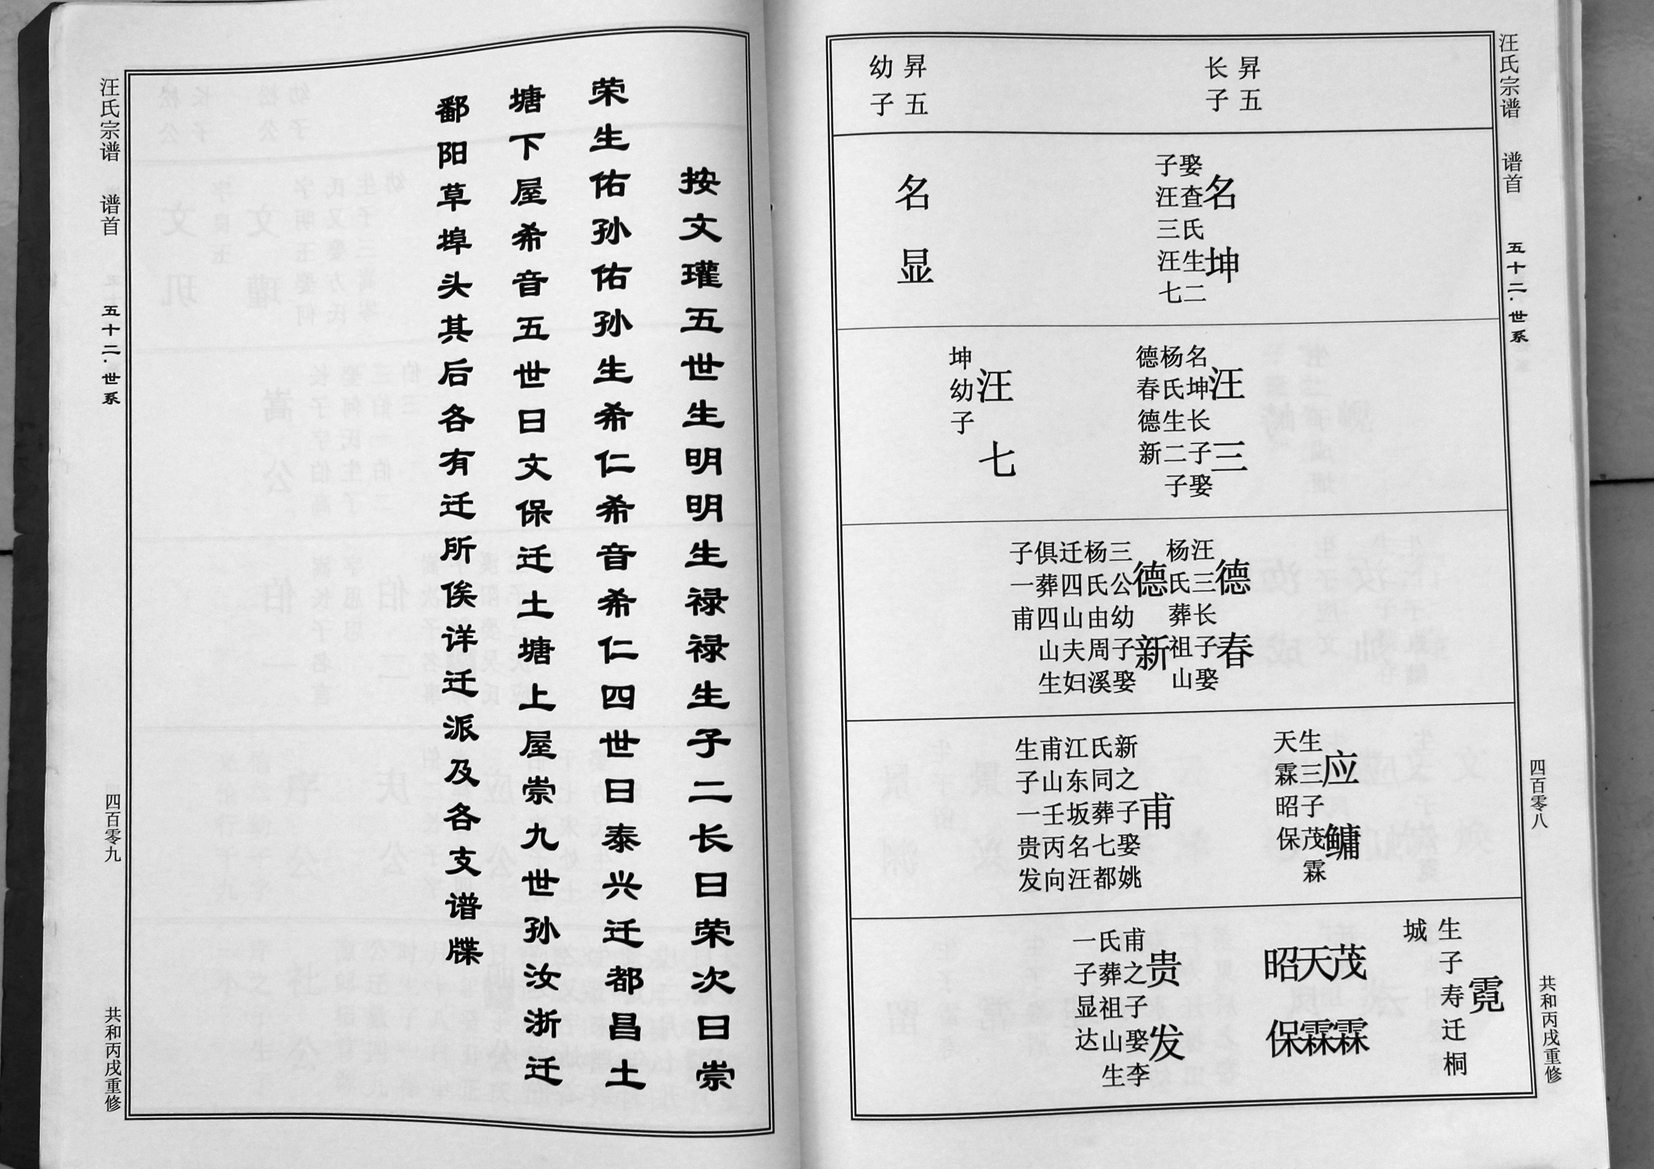 汪氏宗谱 谱首 五十二·世系 四百零八 共和丙戌重修
昇五
长子
昇五
幼子
名坤
娶查氏生二
子汪三汪七
名显
汪三
名坤长子娶
杨氏生二子
德春德新
汪七
坤幼子
德春
汪三长子娶
杨氏葬祖山
德新
三公幼子娶
杨氏由周溪
迁四山夫妇
俱葬四山生
子一甫
应鳙
生三子茂霖
天霖昭保
甫
新之子娶姚
氏同葬七都
江东坂名汪
甫山壬丙向
生子一贵发
霓
生子寿迁桐
城
茂霖
天霖
昭保
贵发
甫之子娶李
氏葬祖山生
一子显达
按文瓘五世生明明生禄禄生子二长曰荣次曰崇
荣生佑孙佑孙生希仁希音希仁四世曰泰兴迁都昌土
塘下屋希音五世曰文保迁土塘上屋崇九世孙汝浙迁
鄱阳草埠头其后各有迁所俟详迁派及各支谱牒
汪氏宗谱 谱首 五十二·世系 四百零九 共和丙戌重修